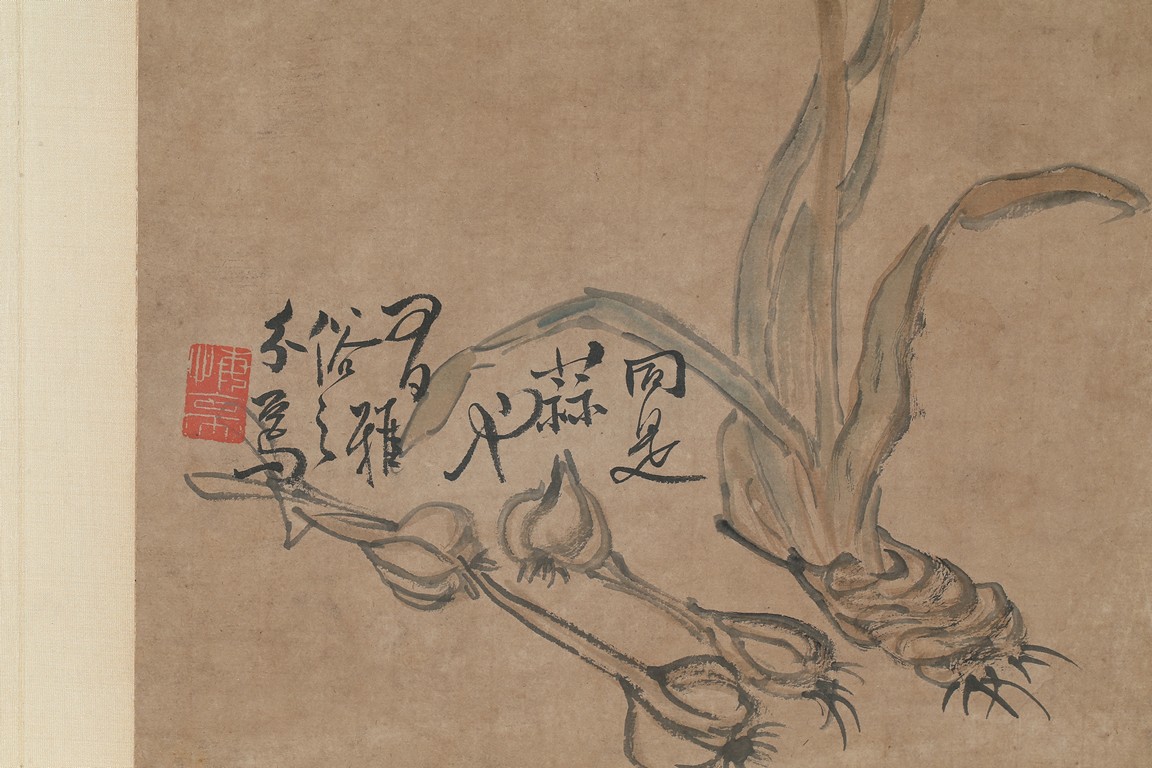 同是
蒜也
有雅
俗之
分焉